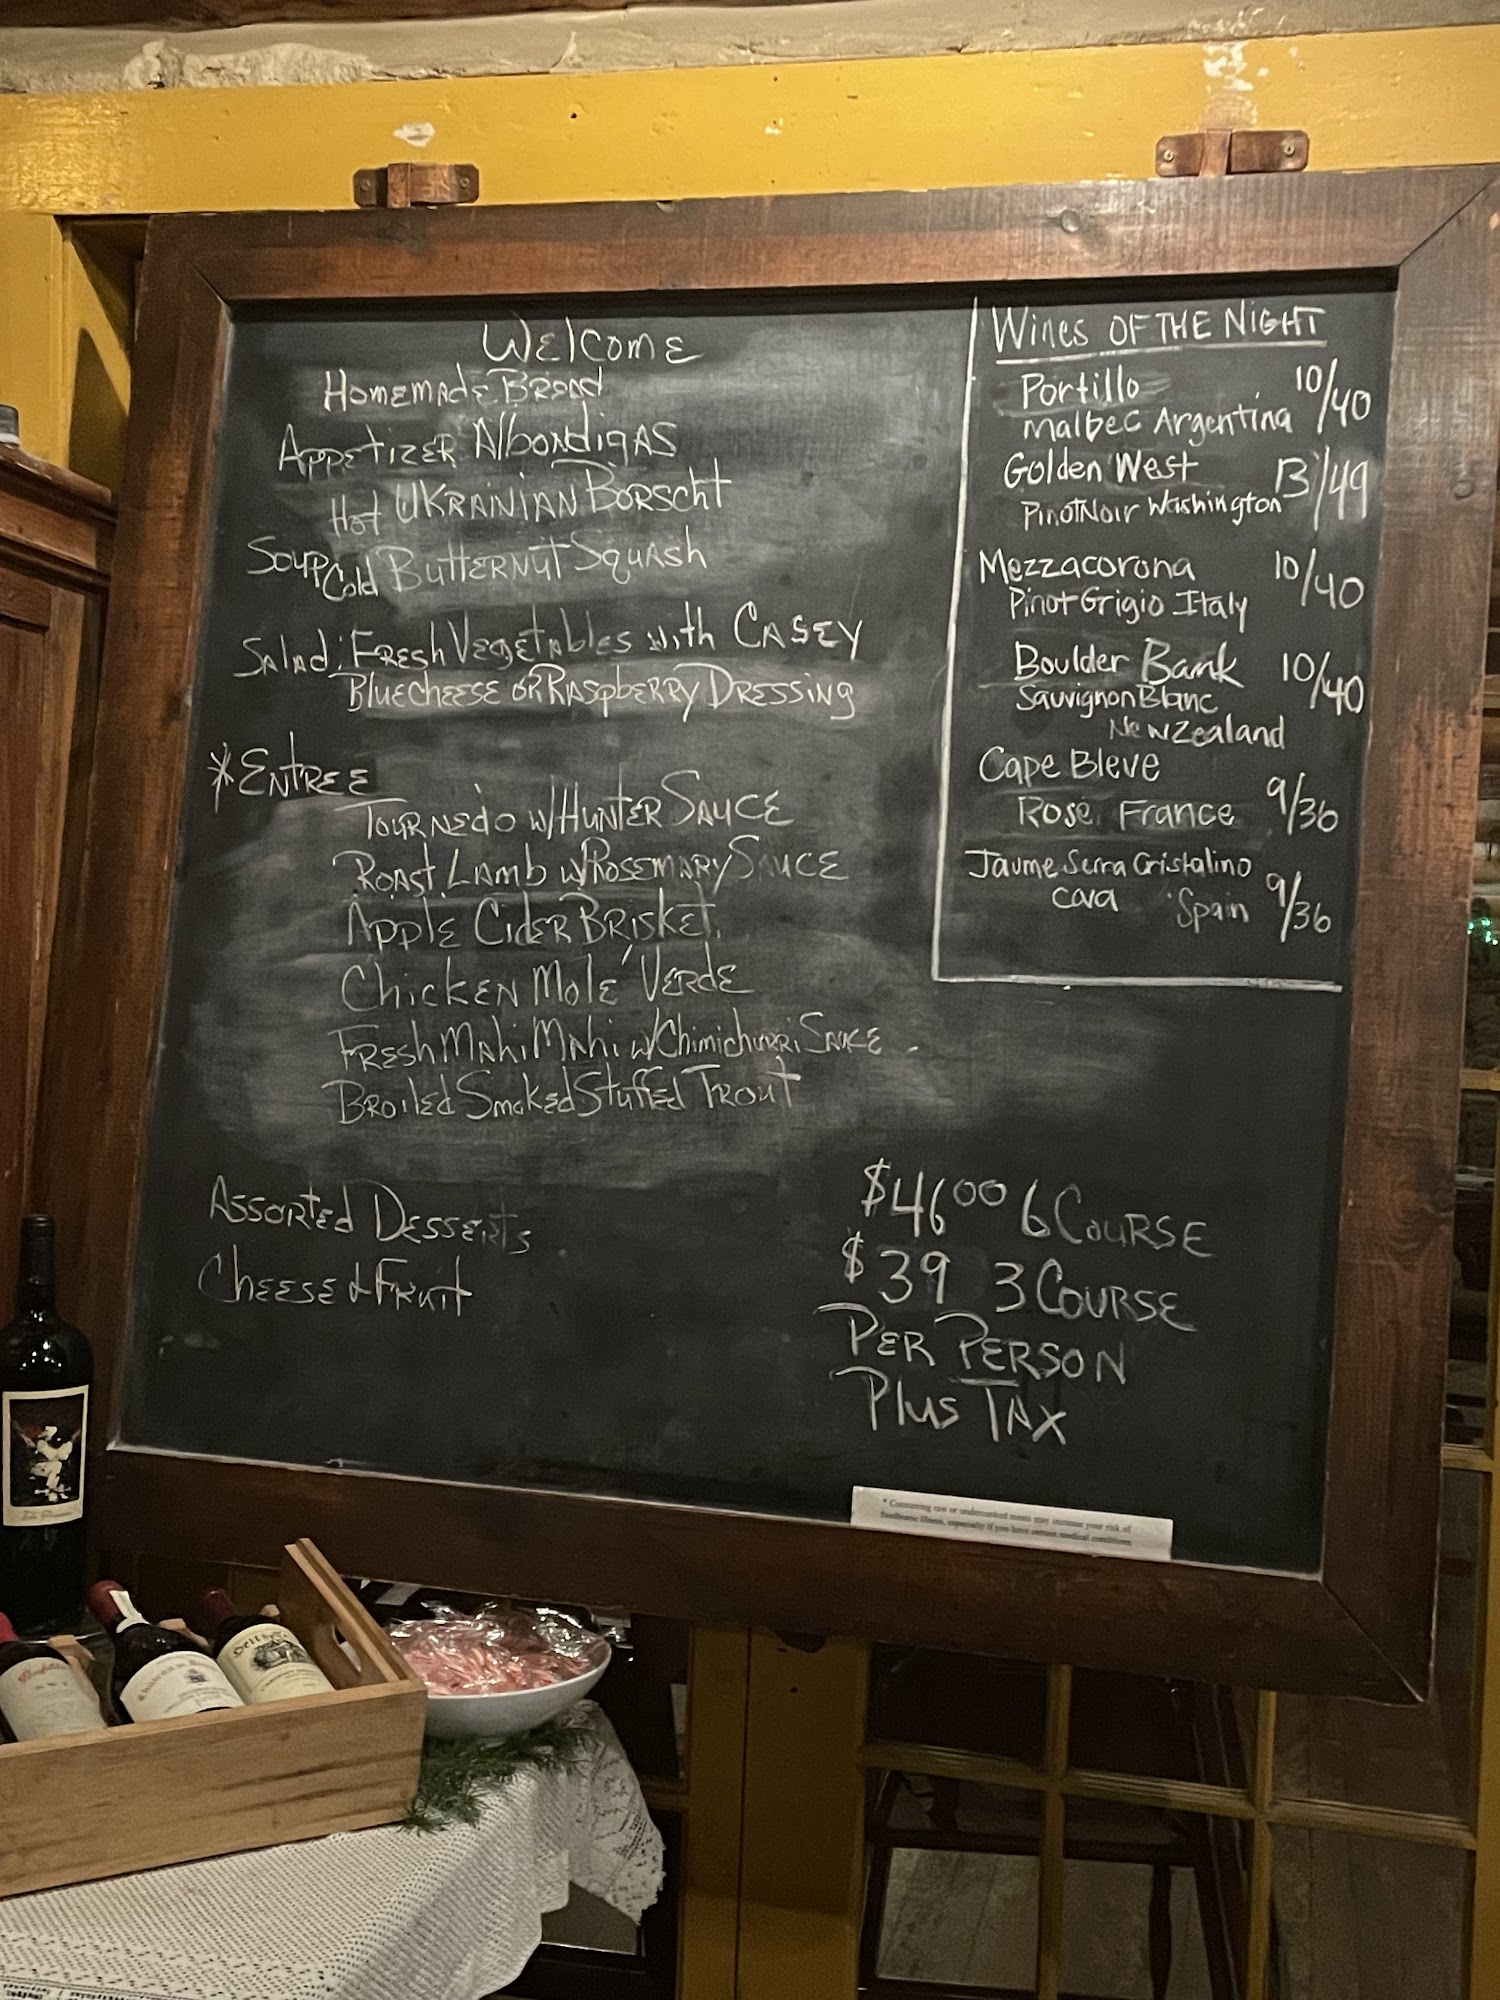 Welcome
Homemade Bread
Appetizer Albondigas
Hot Ukrainian Borscht
Soup
Cold Butternut Squash
Salad: Fresh Vegetables with Casey
Bluecheese or Raspberry Dressing
*Entree
Tournedo w/Hunter Sauce
Roast Lamb w/Rosemary Sauce
Apple Cider Brisket
Chicken Molé Verde
Fresh Mahi Mahi w/Chimichurri Sauce
Broiled Smoked Stuffed Trout
Assorted Desserts
Cheese & Fruit
Wines OF THE NIGHT
Portillo 10/40
Malbec Argentina
Golden West 13/49
Pinot Noir Washington
Mezzacorona 10/40
Pinot Grigio Italy
Boulder Bank 10/40
Sauvignon Blanc
New Zealand
Cape Bleve
Rosé France 9/36
Jaume Serra Cristalino
Cava Spain 9/36
$46.00 6 Course
$39 3 Course
Per Person
Plus Tax
* Consuming raw or undercooked meats may increase your risk of
foodborne illness, especially if you have certain medical conditions